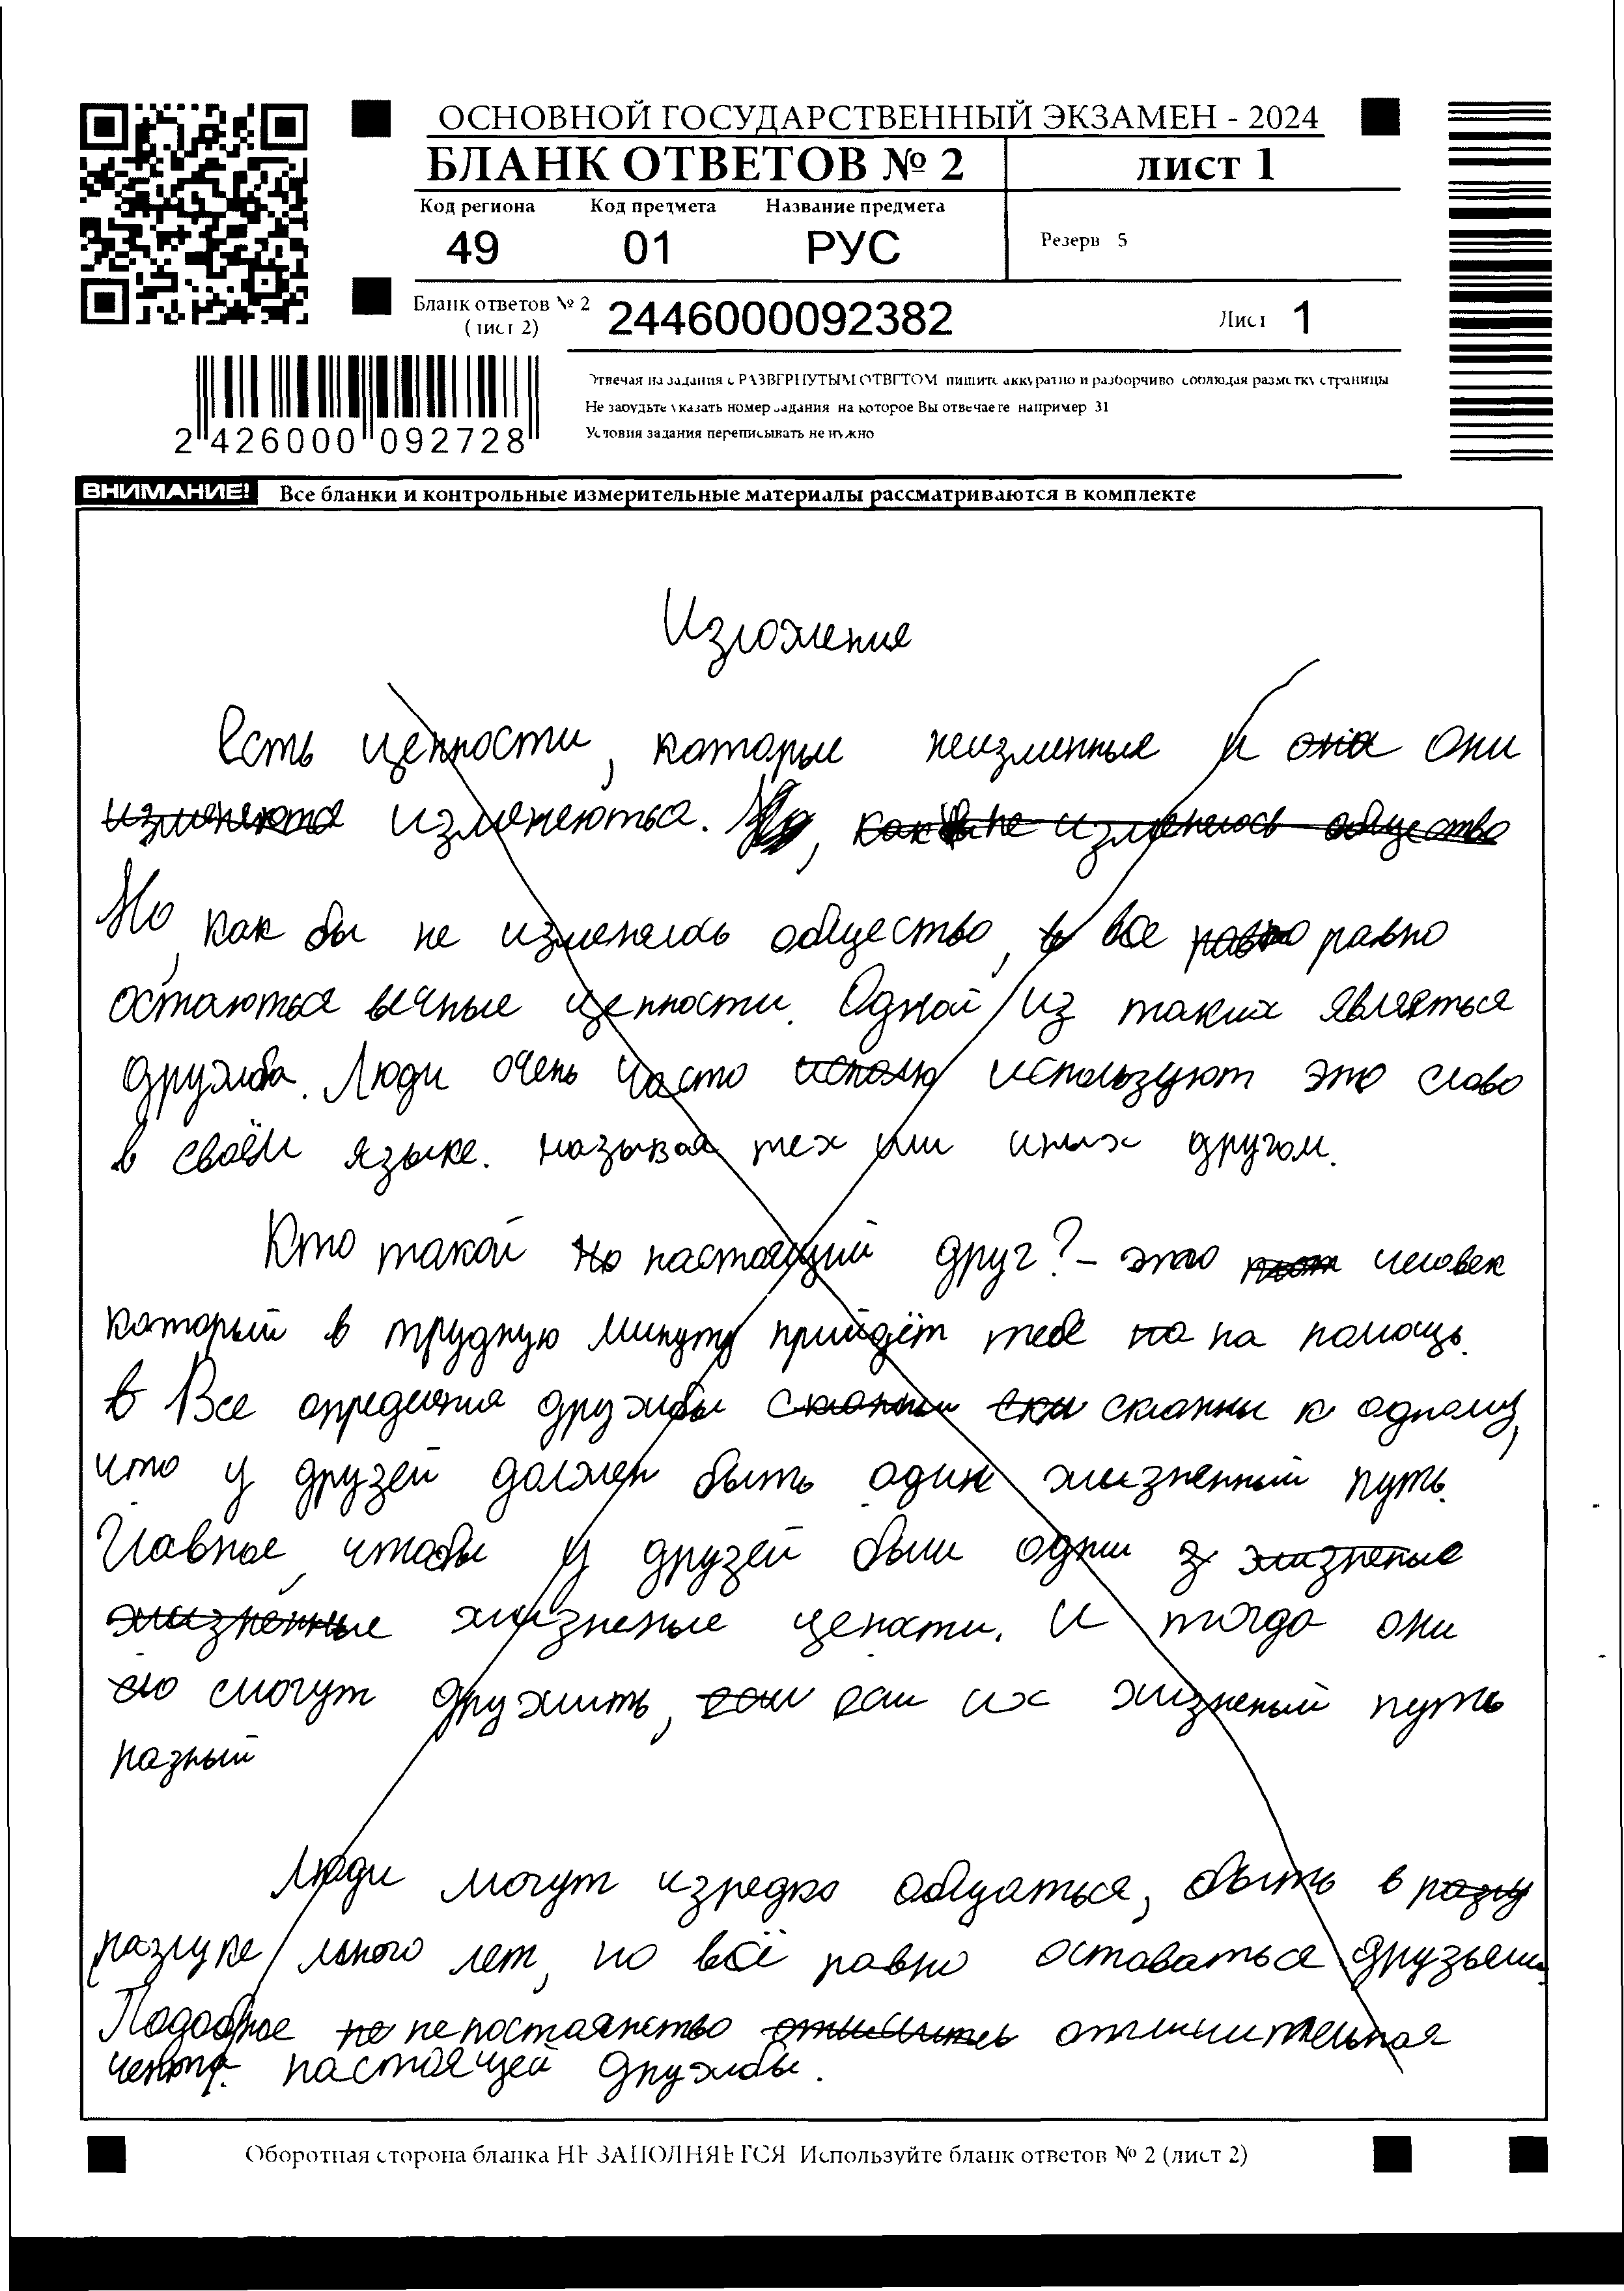 ОСНОВНОЙ ГОСУДАРСТВЕННЫЙ ЭКЗАМЕН - 2024
БЛАНК ОТВЕТОВ № 2 лист 1
Код региона Код предмета Название предмета
49 01 РУС Резерв 5
Бланк ответов № 2 (лист 2) 2446000092382 Лист 1
Отвечая на задания с РАЗВЕРНУТЫМ ОТВЕТОМ пишите аккуратно и разборчиво соблюдая разметку страницы
Не забудьте указать номер задания на которое Вы отвечаете например 31
Условия задания переписывать не нужно
2 426000 092728
ВНИМАНИЕ! Все бланки и контрольные измерительные материалы рассматриваются в комплекте
Изложение
Есть ценности, которые неизменные и она они
изменяются изменеються. Но, как бы не изменелось общество
Но, как бы не изменялось общество, в все равно равно
остаються вечные ценности. Одной из таких являеться
дружба. Люди очень часто исполю используют это слово
в своём языке. называя тех или иных другом.
Кто такой на настоящий друг? - это человек
который в трудную минуту прийдёт тебе на на помощь.
в Все определия дружбы склонны скл склонны к одному,
что у друзей должен быть один жизненный путь.
Главное, чтобы у друзей были одни з жизненые
жизненные жизненые цености. И тогда они
смогут дружить, если если их жизненый путь
разный
Люди могут изредко общаться, быть в разлу
разлуке много лет, но всё равно оставаться друзьями.
Подобное не непостоянство отличитель отличительная
черта настоящей дружбы.
Оборотная сторона бланка НЕ ЗАПОЛНЯЕТСЯ Используйте бланк ответов № 2 (лист 2)